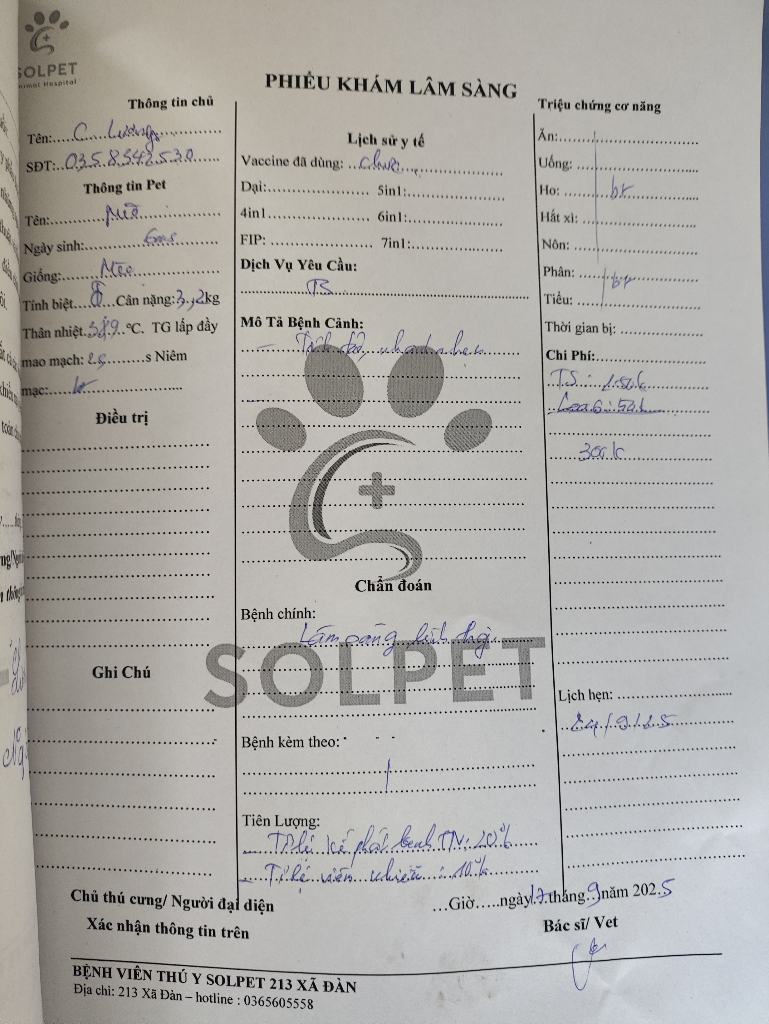 SOLPET
Animal Hospital
PHIẾU KHÁM LÂM SÀNG
Thông tin chủ
Tên: C. Lương
SĐT: 0358342530
Thông tin Pet
Tên:
Ngày sinh: 6ms
Giống: Mèo
Tính biệt Cân nặng: 3,2kg
Thân nhiệt 38,9 °C. TG lấp đầy
mao mạch: 2s s Niêm
mạc: bt
Điều trị
Ghi Chú
Lịch sử y tế
Vaccine đã dùng: chưa
Dại: 5in1:
4in1 6in1:
FIP: 7in1:
Dịch Vụ Yêu Cầu:
TS
Mô Tả Bệnh Cảnh:
Chẩn đoán
Bệnh chính:
Lâm sàng bình thg
SOLPET
Bệnh kèm theo:
Tiên Lượng:
Tỉ lệ kế phát bệnh TN: 20%
Tỉ lệ viêm nhiễm: 10%
Triệu chứng cơ năng
Ăn:
Uống:
Ho: bt
Hắt xì:
Nôn:
Phân: bt
Tiểu:
Thời gian bị:
Chi Phí:
TS:
300k
Lịch hẹn:
24/9/25
Chủ thú cưng/ Người đại diện
Xác nhận thông tin trên
...Giờ.....ngày 17 tháng 9 năm 2025
Bác sĩ/ Vet
BỆNH VIÊN THÚ Y SOLPET 213 XÃ ĐÀN
Địa chỉ: 213 Xã Đàn – hotline : 0365605558